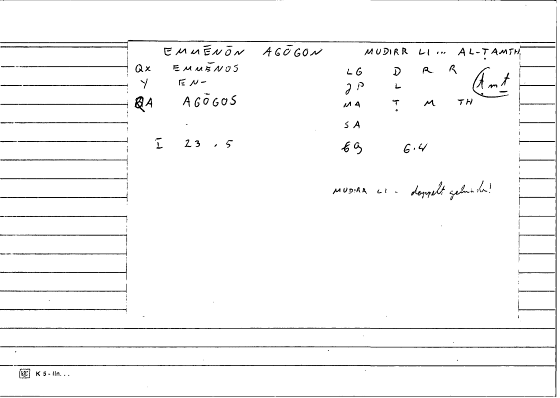 EMMĒNŌN AGŌGON MUDIRR LI... AL-ṬAMTH
Qx EMMĒNOS LG D R R ṭmṯ
Y EN- JP L
QA AGŌGOS MA Ṭ M TH
SA
I 23.5 EQ 6.4
MUDIRR LI - doppelt
K 5 - lin...